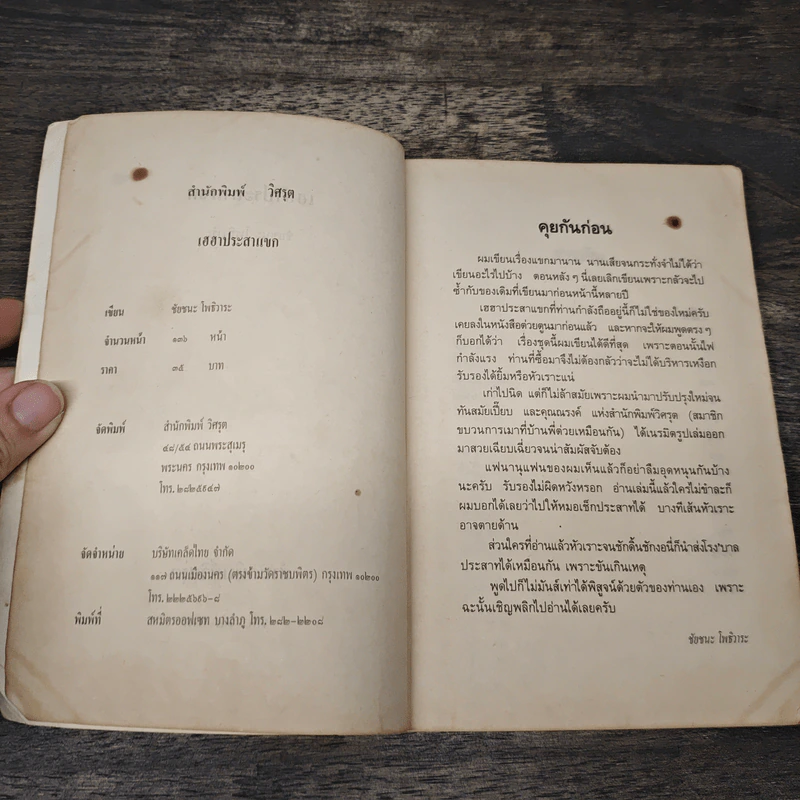 สำนักพิมพ์ วิศรุต
เฮฮาประสาแขก
เขียน ชัยชนะ โพธิวาระ
จำนวนหน้า ๑๓๖ หน้า
ราคา ๓๕ บาท
จัดพิมพ์ สำนักพิมพ์ วิศรุต
๔๘/๕๔ ถนนพระสุเมรุ
พระนคร กรุงเทพ ๑๐๒๐๐
โทร. ๒๘๒๕๙๔๗
จัดจำหน่าย บริษัทเคล็ดไทย จำกัด
๑๑๗ ถนนเฟื่องนคร (ตรงข้ามวัดราชบพิตร) กรุงเทพ ๑๐๒๐๐
โทร. ๒๒๒๕๖๙๖-๘
พิมพ์ที่ สหมิตรออฟเซท บางลำภู โทร. ๒๘๒-๒๒๐๘
คุยกันก่อน
ผมเขียนเรื่องแขกมานาน นานเสียจนกระทั่งจำไม่ได้ว่า
เขียนอะไรไปบ้าง ตอนหลัง ๆ นี่เลยเลิกเขียนเพราะกลัวจะไป
ซ้ำกับของเดิมที่เขียนมาก่อนหน้านี้หลายปี
เฮฮาประสาแขกที่ท่านกำลังถืออยู่นี้ก็ไม่ใช่ของใหม่ครับ
เคยลงในหนังสือต่วยตูนมาก่อนแล้ว และหากจะให้ผมพูดตรง ๆ
ก็บอกได้ว่า เรื่องชุดนี้ผมเขียนได้ดีที่สุด เพราะตอนนั้นไฟ
กำลังแรง ท่านที่ซื้อมาจึงไม่ต้องกลัวว่าจะไม่ได้บริหารเหงือก
รับรองได้ยิ้มหรือหัวเราะแน่
เก่าไปนิด แต่ก็ไม่ล้าสมัยเพราะผมนำมาปรับปรุงใหม่จน
ทันสมัยเปี๊ยบ และคุณณรงค์ แห่งสำนักพิมพ์วิศรุต (สมาชิก
ขบวนการเมาที่บ้านพี่ต่วยเหมือนกัน) ได้เนรมิตรูปเล่มออก
มาสวยเฉียบเฉี่ยวจนน่าสัมผัสจับต้อง
แฟนานุแฟนของผมเห็นแล้วก็อย่าลืมอุดหนุนกันบ้าง
นะครับ รับรองไม่ผิดหวังหรอก อ่านเล่มนี้แล้วใครไม่ขำละก็
ผมบอกได้เลยว่าไปให้หมอเช็กประสาทได้ บางทีเส้นหัวเราะ
อาจตายด้าน
ส่วนใครที่อ่านแล้วหัวเราะจนชักดิ้นชักงอนี่ก็นำส่งโรงพยาบาล
ประสาทได้เหมือนกัน เพราะขันเกินเหตุ
พูดไปก็ไม่มันส์เท่าได้พิสูจน์ด้วยตัวของท่านเอง เพราะ
ฉะนั้นเชิญพลิกไปอ่านได้เลยครับ
ชัยชนะ โพธิวาระ